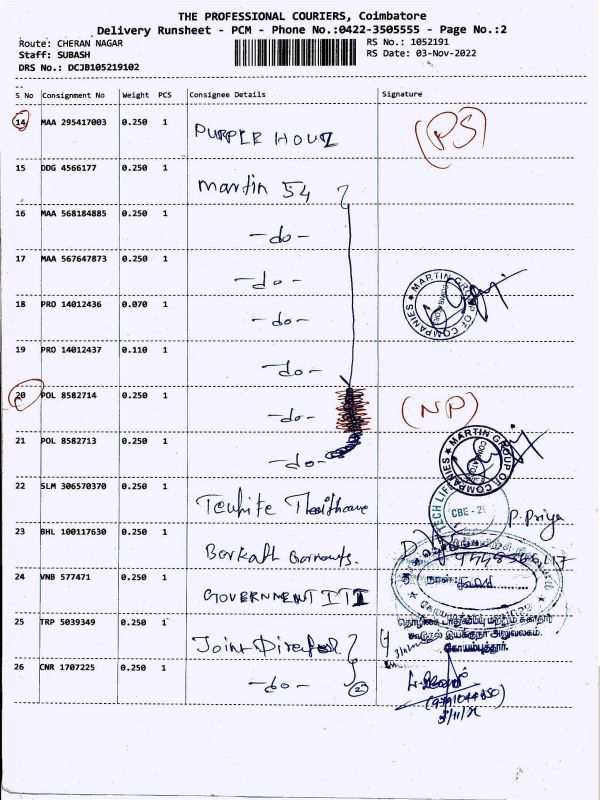 THE PROFESSIONAL COURIERS, Coimbatore
Delivery Runsheet - PCM - Phone No.:0422-3505555 - Page No.:2
Route: CHERAN NAGAR RS No.: 1052191
Staff: SUBASH RS Date: 03-Nov-2022
DRS No.: DCJB105219102
S No Consignment No Weight PCS Consignee Details Signature
14 MAA 295417003 0.250 1 PURPLE (PS)
15 DDG 4566177 0.250 1 Martin 54
16 MAA 568184885 0.250 1 -do-
17 MAA 567647873 0.250 1 -do-
MARTIN GROUP OF COMPANIES
18 PRO 14012436 0.070 1 -do-
19 PRO 14012437 0.110 1 -do-
20 POL 8582714 0.250 1 -do- (NP)
21 POL 8582713 0.250 1 -do-
MARTIN GROUP OF COMPANIES
22 SLM 306570370 0.250 1
TECH LIFE CBE - P. Priya
23 BHL 100117630 0.250 1
24 VNB 577471 0.250 1 GOVERNMENT ITI
25 TRP 5039349 0.250 1 Joint Director
கூடுதல் இயக்குநர் அலுவலகம்.
கோயம்புத்தூர்.
26 CNR 1707225 0.250 1 -do- (2)